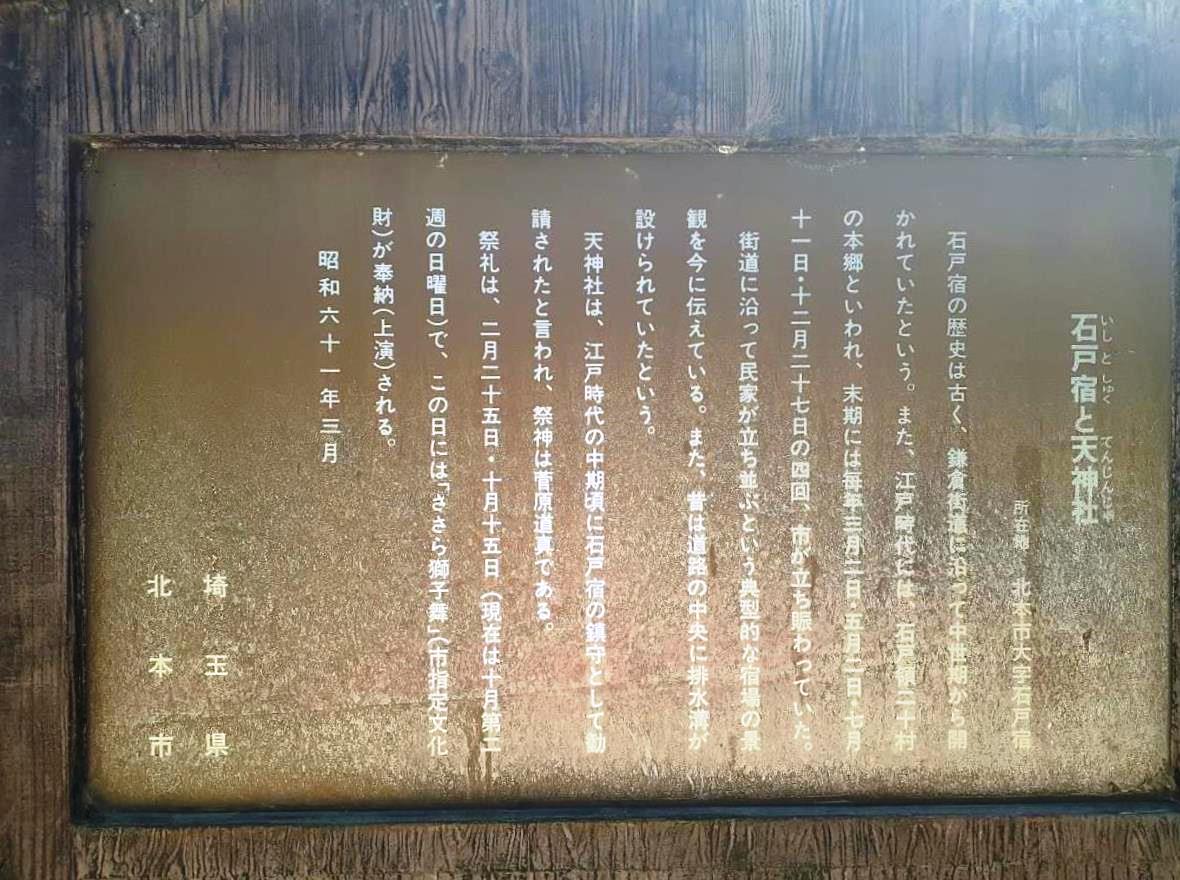 石戸宿と天神社
いしとしゅく てんじんしゃ
所在地 北本市大字石戸宿
石戸宿の歴史は古く、鎌倉街道に沿って中世期から開
かれていたという。また、江戸時代には、石戸領二十村
の本郷といわれ、末期には毎年三月二日・五月二日・七月
十一日・十二月二十七日の四回、市が立ち賑わっていた。
街道に沿って民家が立ち並ぶという典型的な宿場の景
観を今に伝えている。また、昔は道路の中央に排水溝が
設けられていたという。
天神社は、江戸時代の中期頃に石戸宿の鎮守として勧
請されたと言われ、祭神は菅原道真である。
祭礼は、二月二十五日・十月十五日（現在は十月第二
週の日曜日）で、この日には「ささら獅子舞」（市指定文化
財）が奉納（上演）される。
昭和六十一年三月
埼玉県
北本市